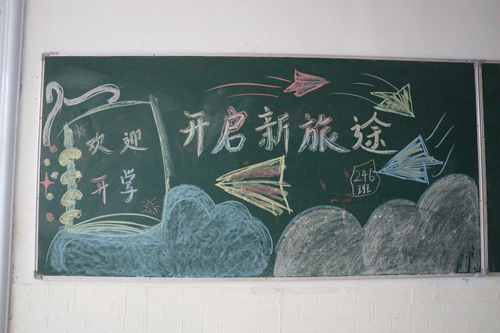 欢迎
开学
开启新旅途
246
班